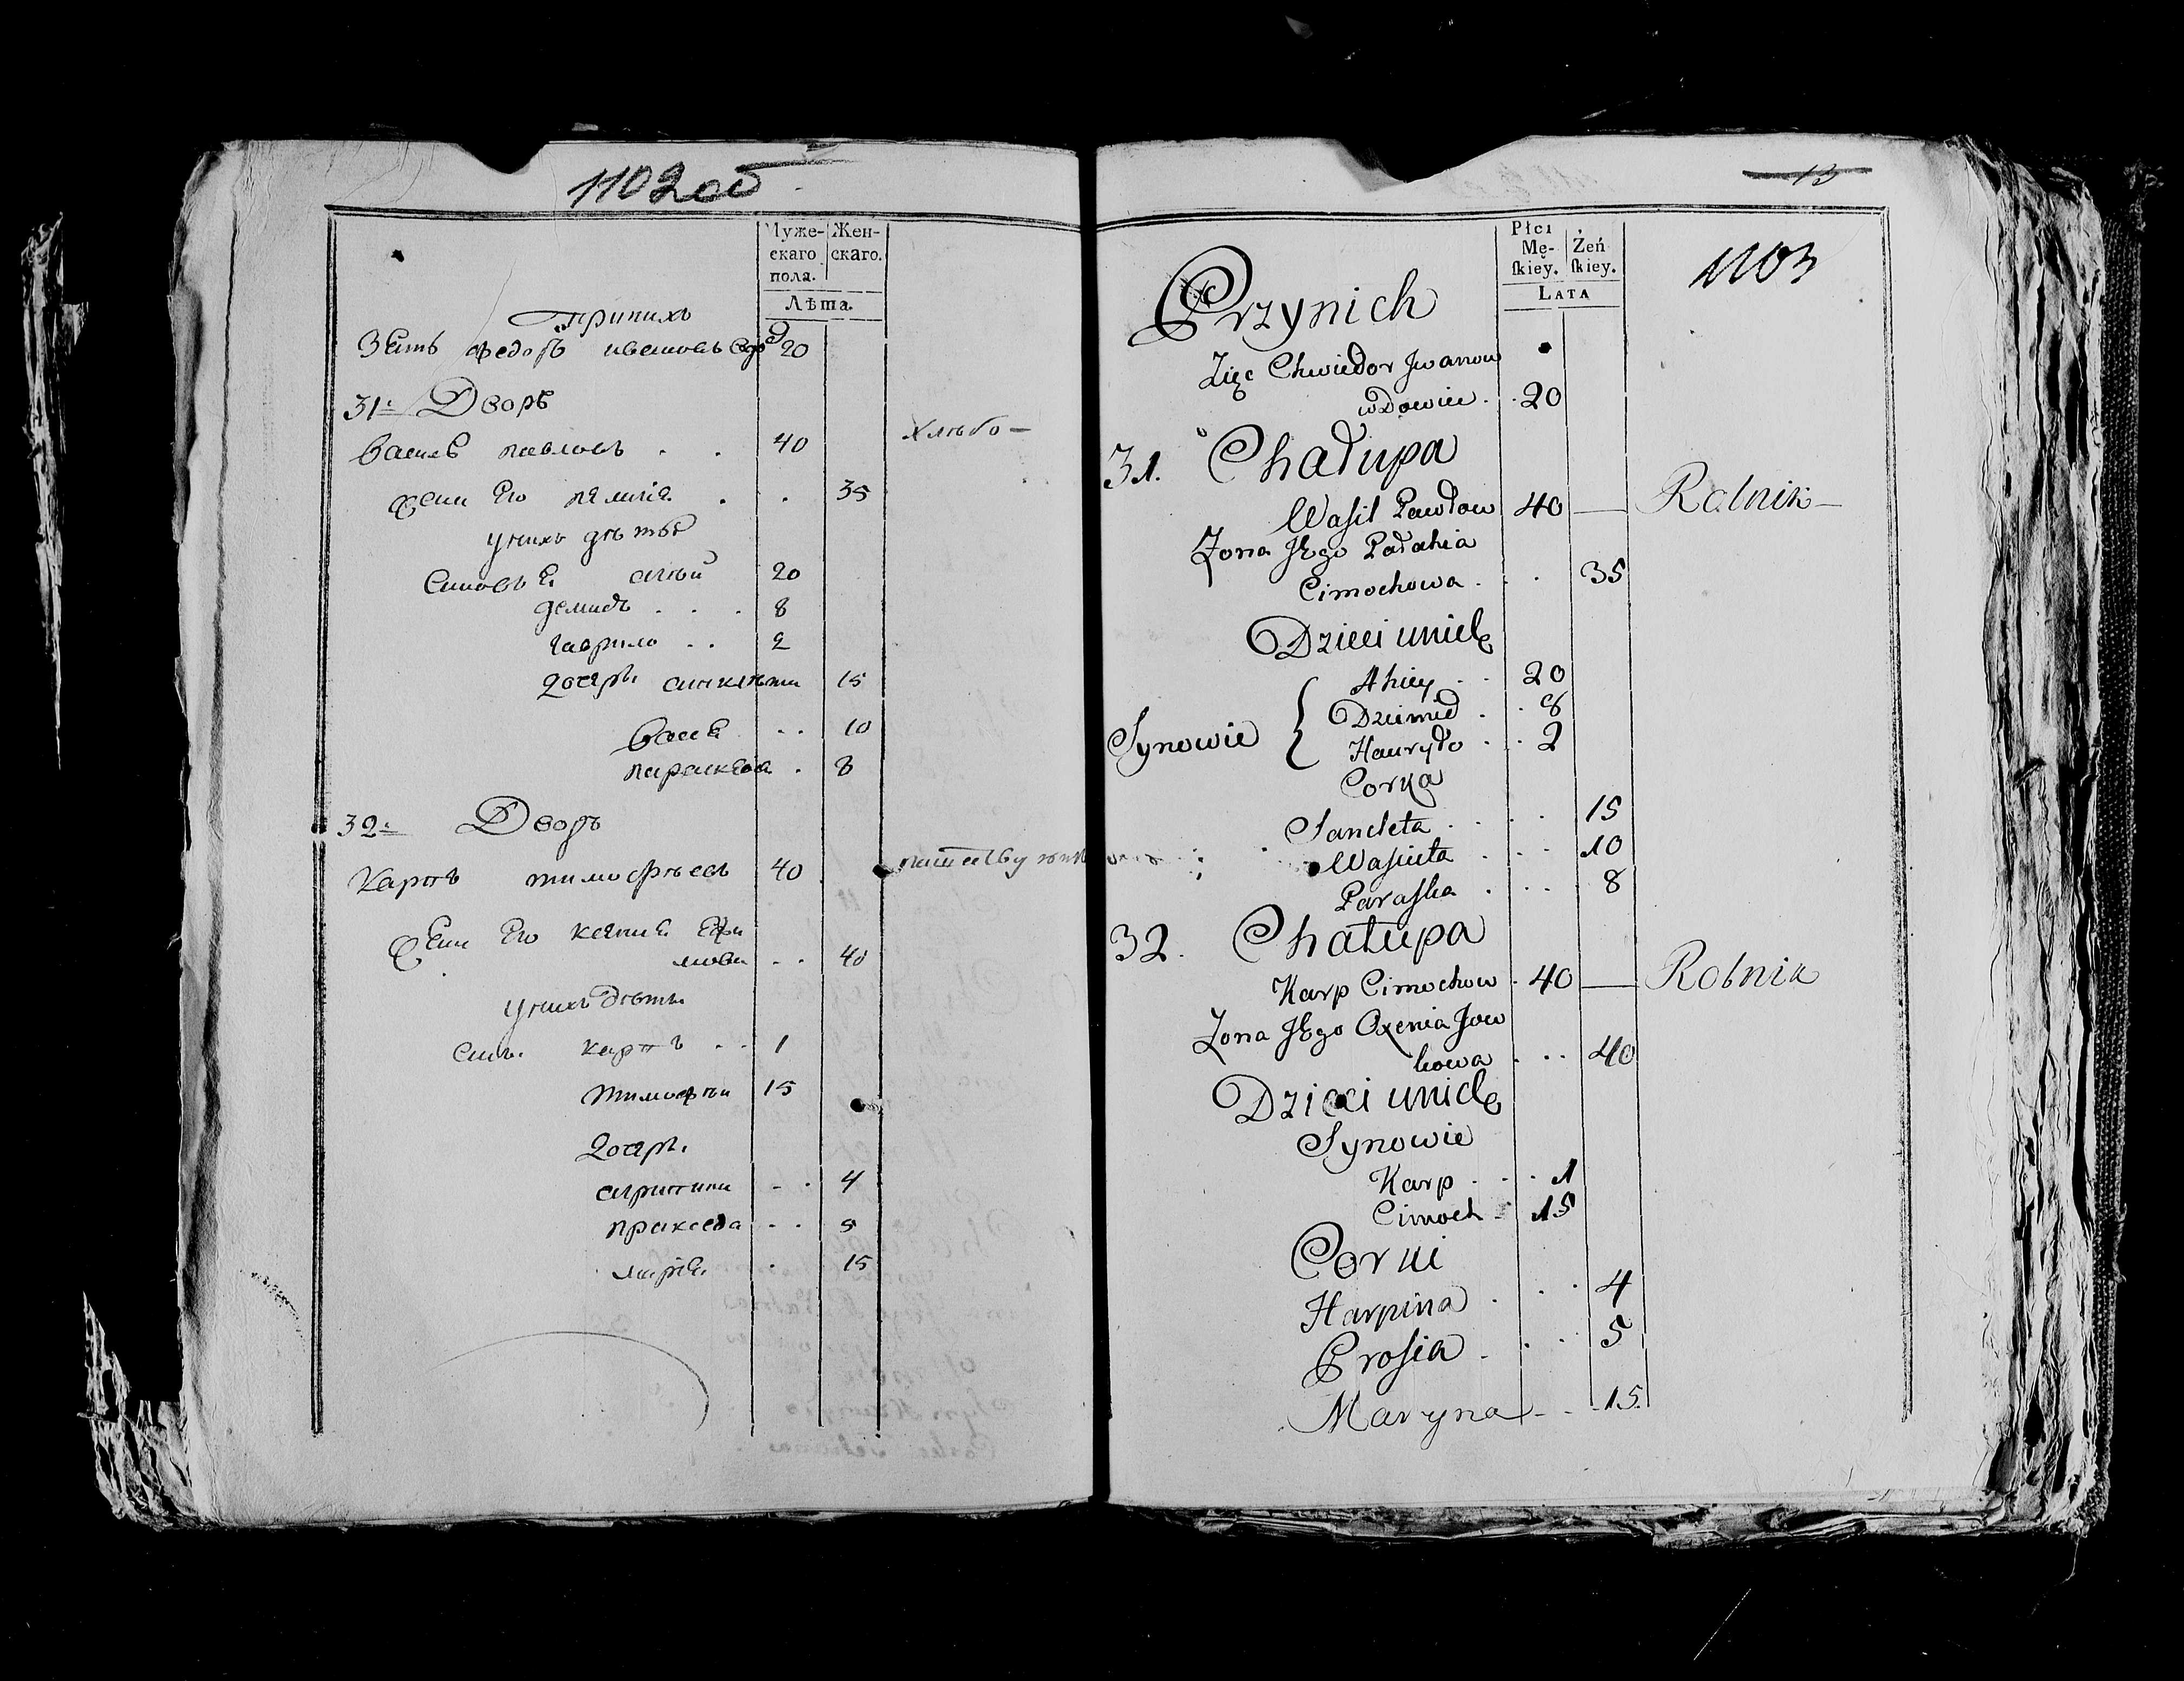 1102об
Муже-
скаго
пола.
Жен-
скаго.
Лѣта.
при нихъ
Зять Федоръ Ивановъ вдо 20
31 Дворъ
Василь Павловъ . . 40 Хлѣбо-
Жена Его Палагія . . 35
У нихъ дѣти
Сыновья Агѣй 20
Демидъ . . . 8
Гаврило . . 2
Дочерь Анклѣта 15
Васса . . 10
Параскева . 8
32 Дворъ
Карпъ Тимофѣевъ 40
Жена Его Ксенія
. . 40
У нихъ Дѣти
Сынъ Карпъ . . 1
Тимофѣй 15
Дочерь
Агрипина . . 4
Пракседа . . 5
Марья . 15
13
1103
Płci
Mę-
ſkiey.
Żeń
ſkiey.
LATA
Przynich
Zięc Chwiedor Jwanow
wdowiec . . 20
31. Chałupa
Wasil Pawłow 40 — Rolnik —
Zona JEgo Pałahia
Cimochowa . . 35
Dzieci unich
Ahiey . . 20
Synowie { Dziemid . . 8
Hauryło . . 2
Corka
Sancleta . . . . 15
Wasiuta . . . 10
Paraska . . . 8
32. Chałupa
Karp Cimochow . 40 — Rolnik
Zona JEgo Oxenia Jow
howa . . . 40
Dzieci unich
Synowie
Karp . . . 1
Cimoch . 15
Corki
Harpina . . . 4
Prosia . . . 5
Maryna . . 15.